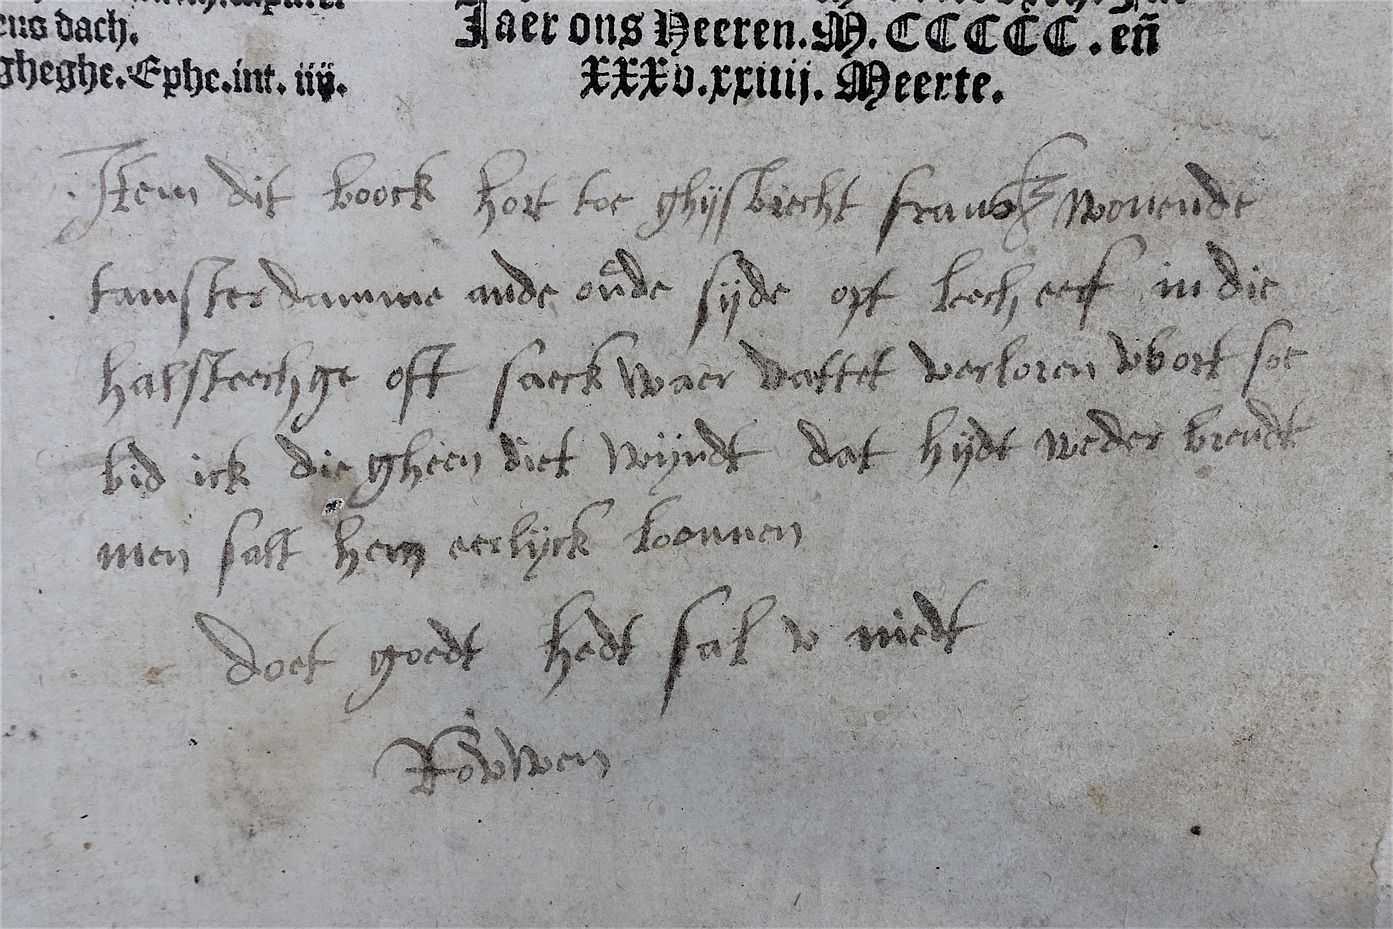 eus dach.
gheghe. Ephe. int. iiij.
Jaer ons Heeren. M. CCCCC. eñ
XXXV. xxiiij. Meerte.
Item dit boock hort toe ghijsbrecht franss wonende
tamsterdamme ande oude sijde opt kerch eef in die
halsteechge oft saeck waer dattet verloren wort soe
bid ick die gheen diet wijndt dat hijdt weder brendt
men salt hem eerlijck loonnen
doet goedt hedt sal v niedt
Rowwen